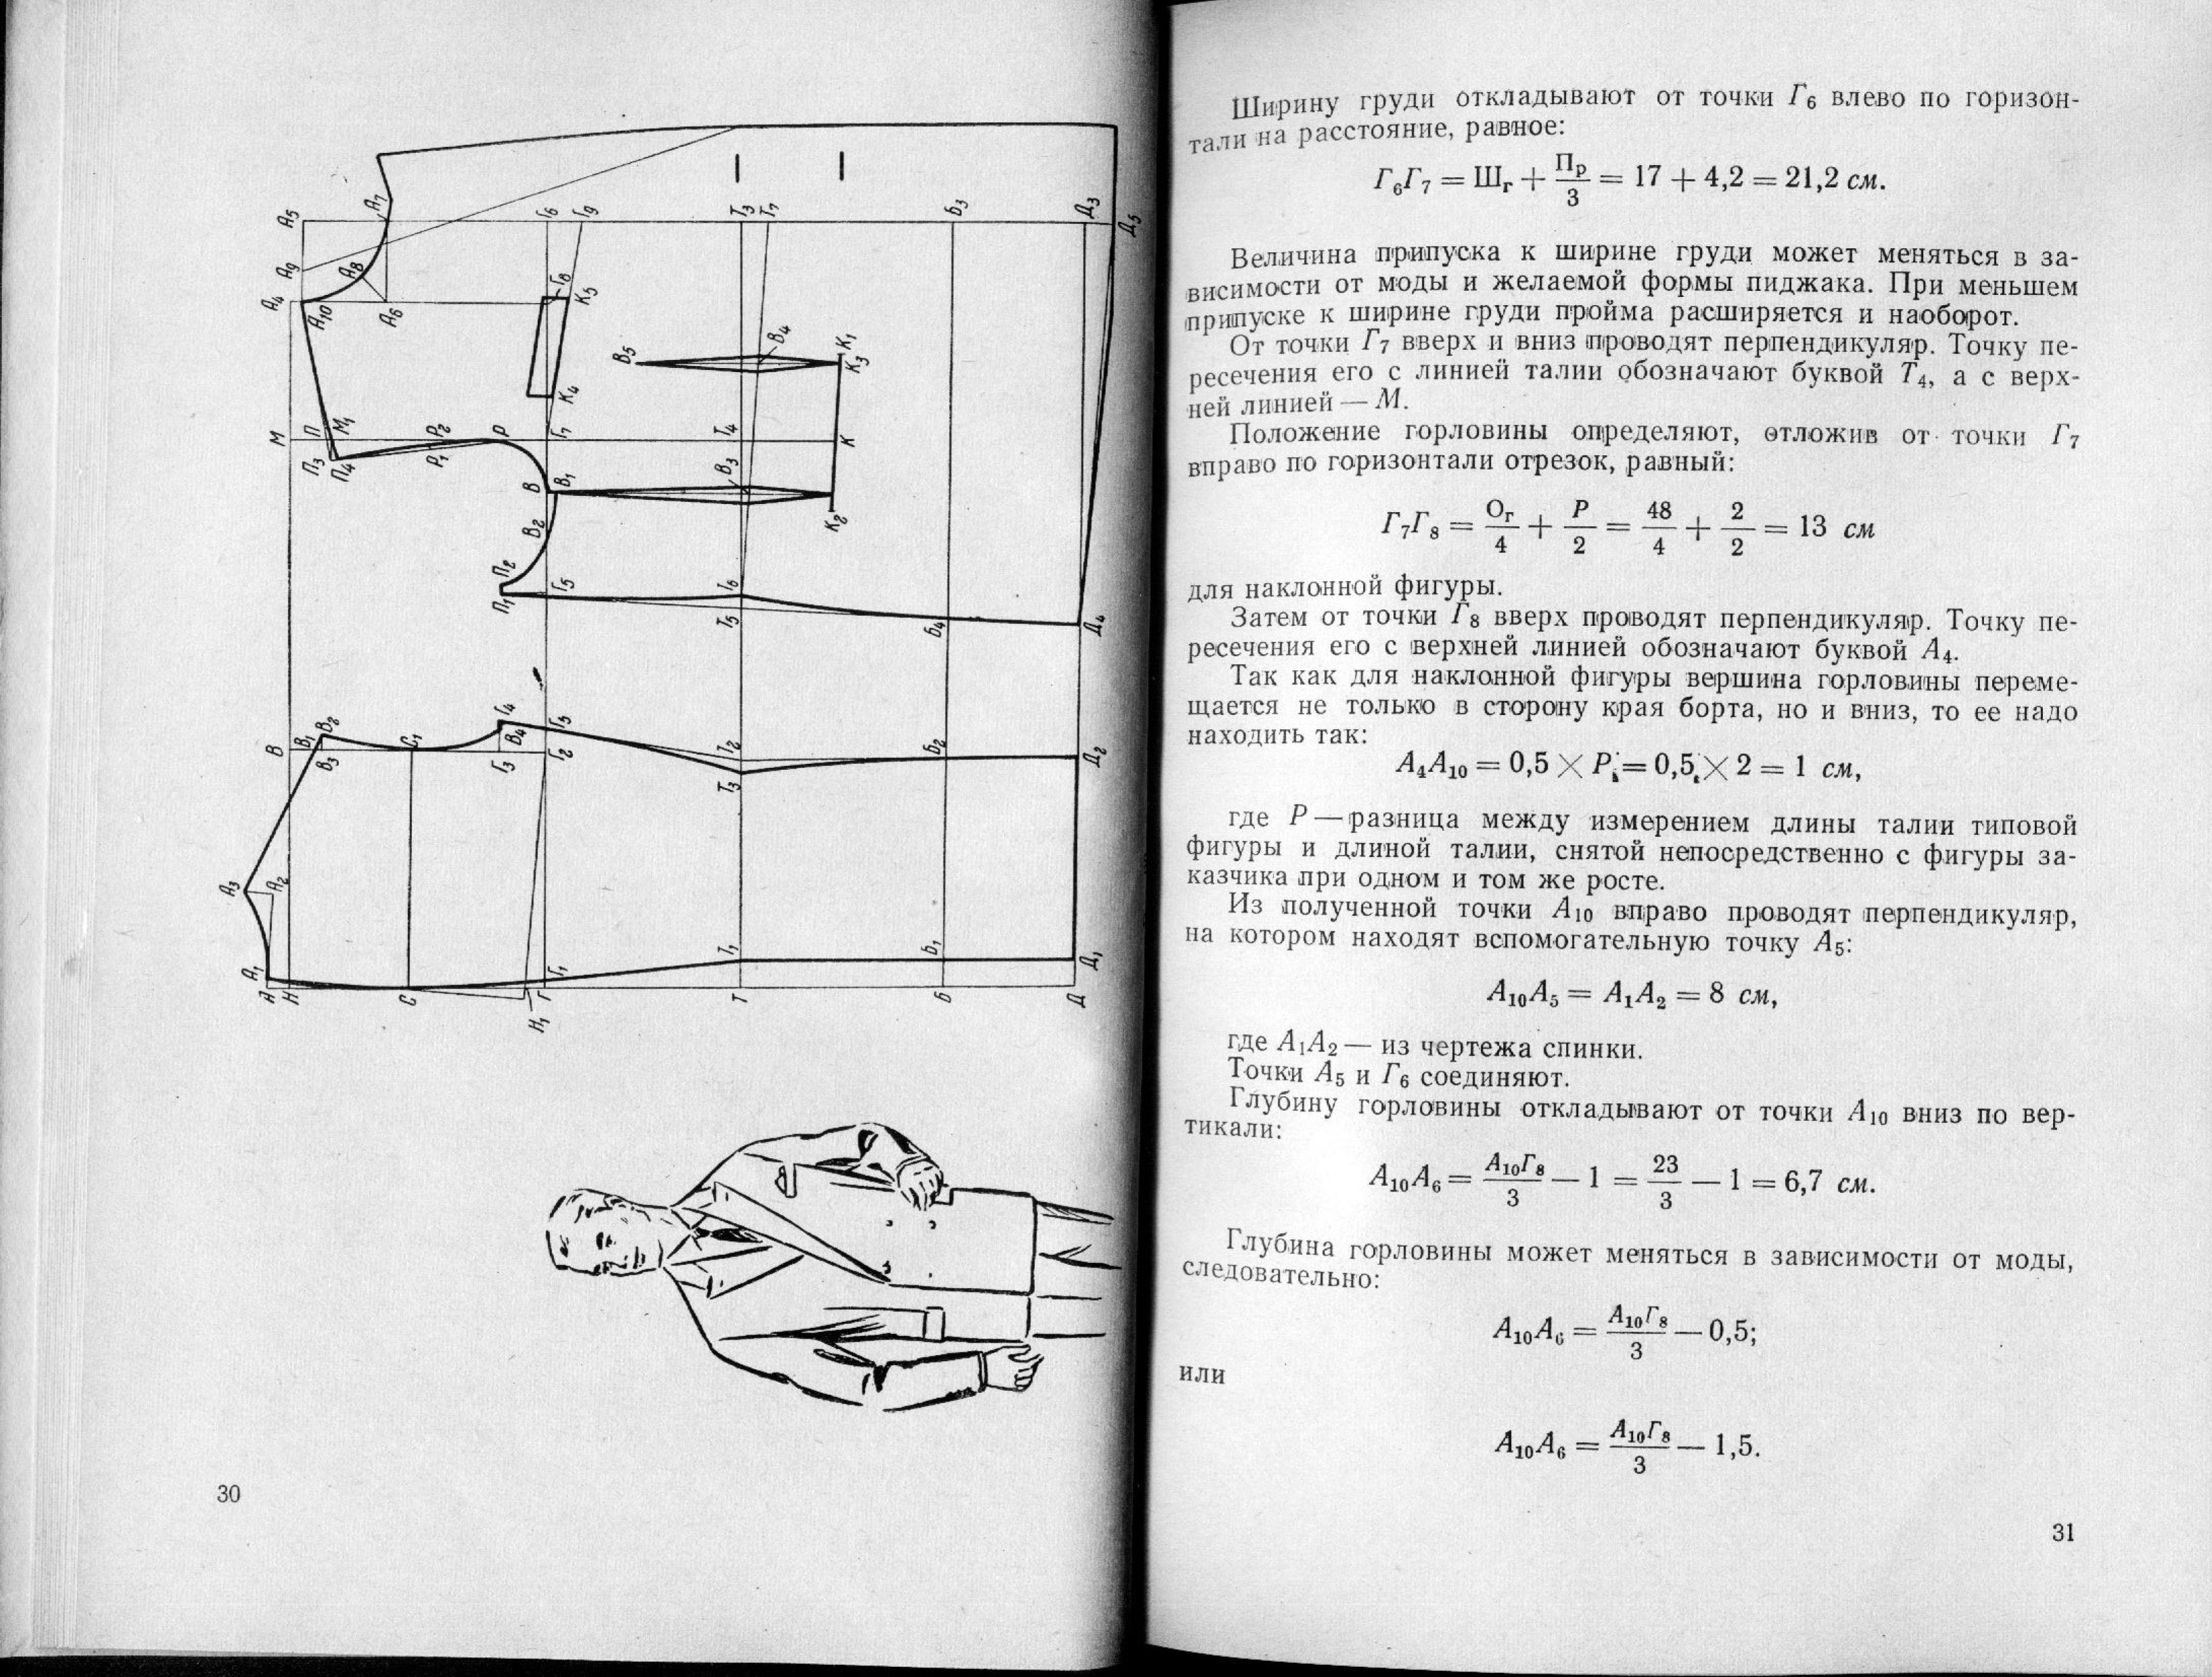 30
Ширину груди откладывают от точки Г₆ влево по горизон-
тали на расстояние, равное:
Г₆Г₇ = Шг + Пр/3 = 17 + 4,2 = 21,2 см.
Величина припуска к ширине груди может меняться в за-
висимости от моды и желаемой формы пиджака. При меньшем
припуске к ширине груди пройма расширяется и наоборот.
От точки Г₇ вверх и вниз проводят перпендикуляр. Точку пе-
ресечения его с линией талии обозначают буквой Т₄, а с верх-
ней линией — М.
Положение горловины определяют, отложив от точки Г₇
вправо по горизонтали отрезок, равный:
Г₇Г₈ = Ог/4 + Р/2 = 48/4 + 2/2 = 13 см
для наклонной фигуры.
Затем от точки Г₈ вверх проводят перпендикуляр. Точку пе-
ресечения его с верхней линией обозначают буквой А₄.
Так как для наклонной фигуры вершина горловины переме-
щается не только в сторону края борта, но и вниз, то ее надо
находить так:
А₄А₁₀ = 0,5 × Р = 0,5 × 2 = 1 см,
где Р — разница между измерением длины талии типовой
фигуры и длиной талии, снятой непосредственно с фигуры за-
казчика при одном и том же росте.
Из полученной точки А₁₀ вправо проводят перпендикуляр,
на котором находят вспомогательную точку А₅:
А₁₀А₅ = А₁А₂ = 8 см,
где А₁А₂ — из чертежа спинки.
Точки А₅ и Г₆ соединяют.
Глубину горловины откладывают от точки А₁₀ вниз по вер-
тикали:
А₁₀А₆ = А₁₀Г₈/3 — 1 = 23/3 — 1 = 6,7 см.
Глубина горловины может меняться в зависимости от моды,
следовательно:
А₁₀А₆ = А₁₀Г₈/3 — 0,5;
или
А₁₀А₆ = А₁₀Г₈/3 — 1,5.
31